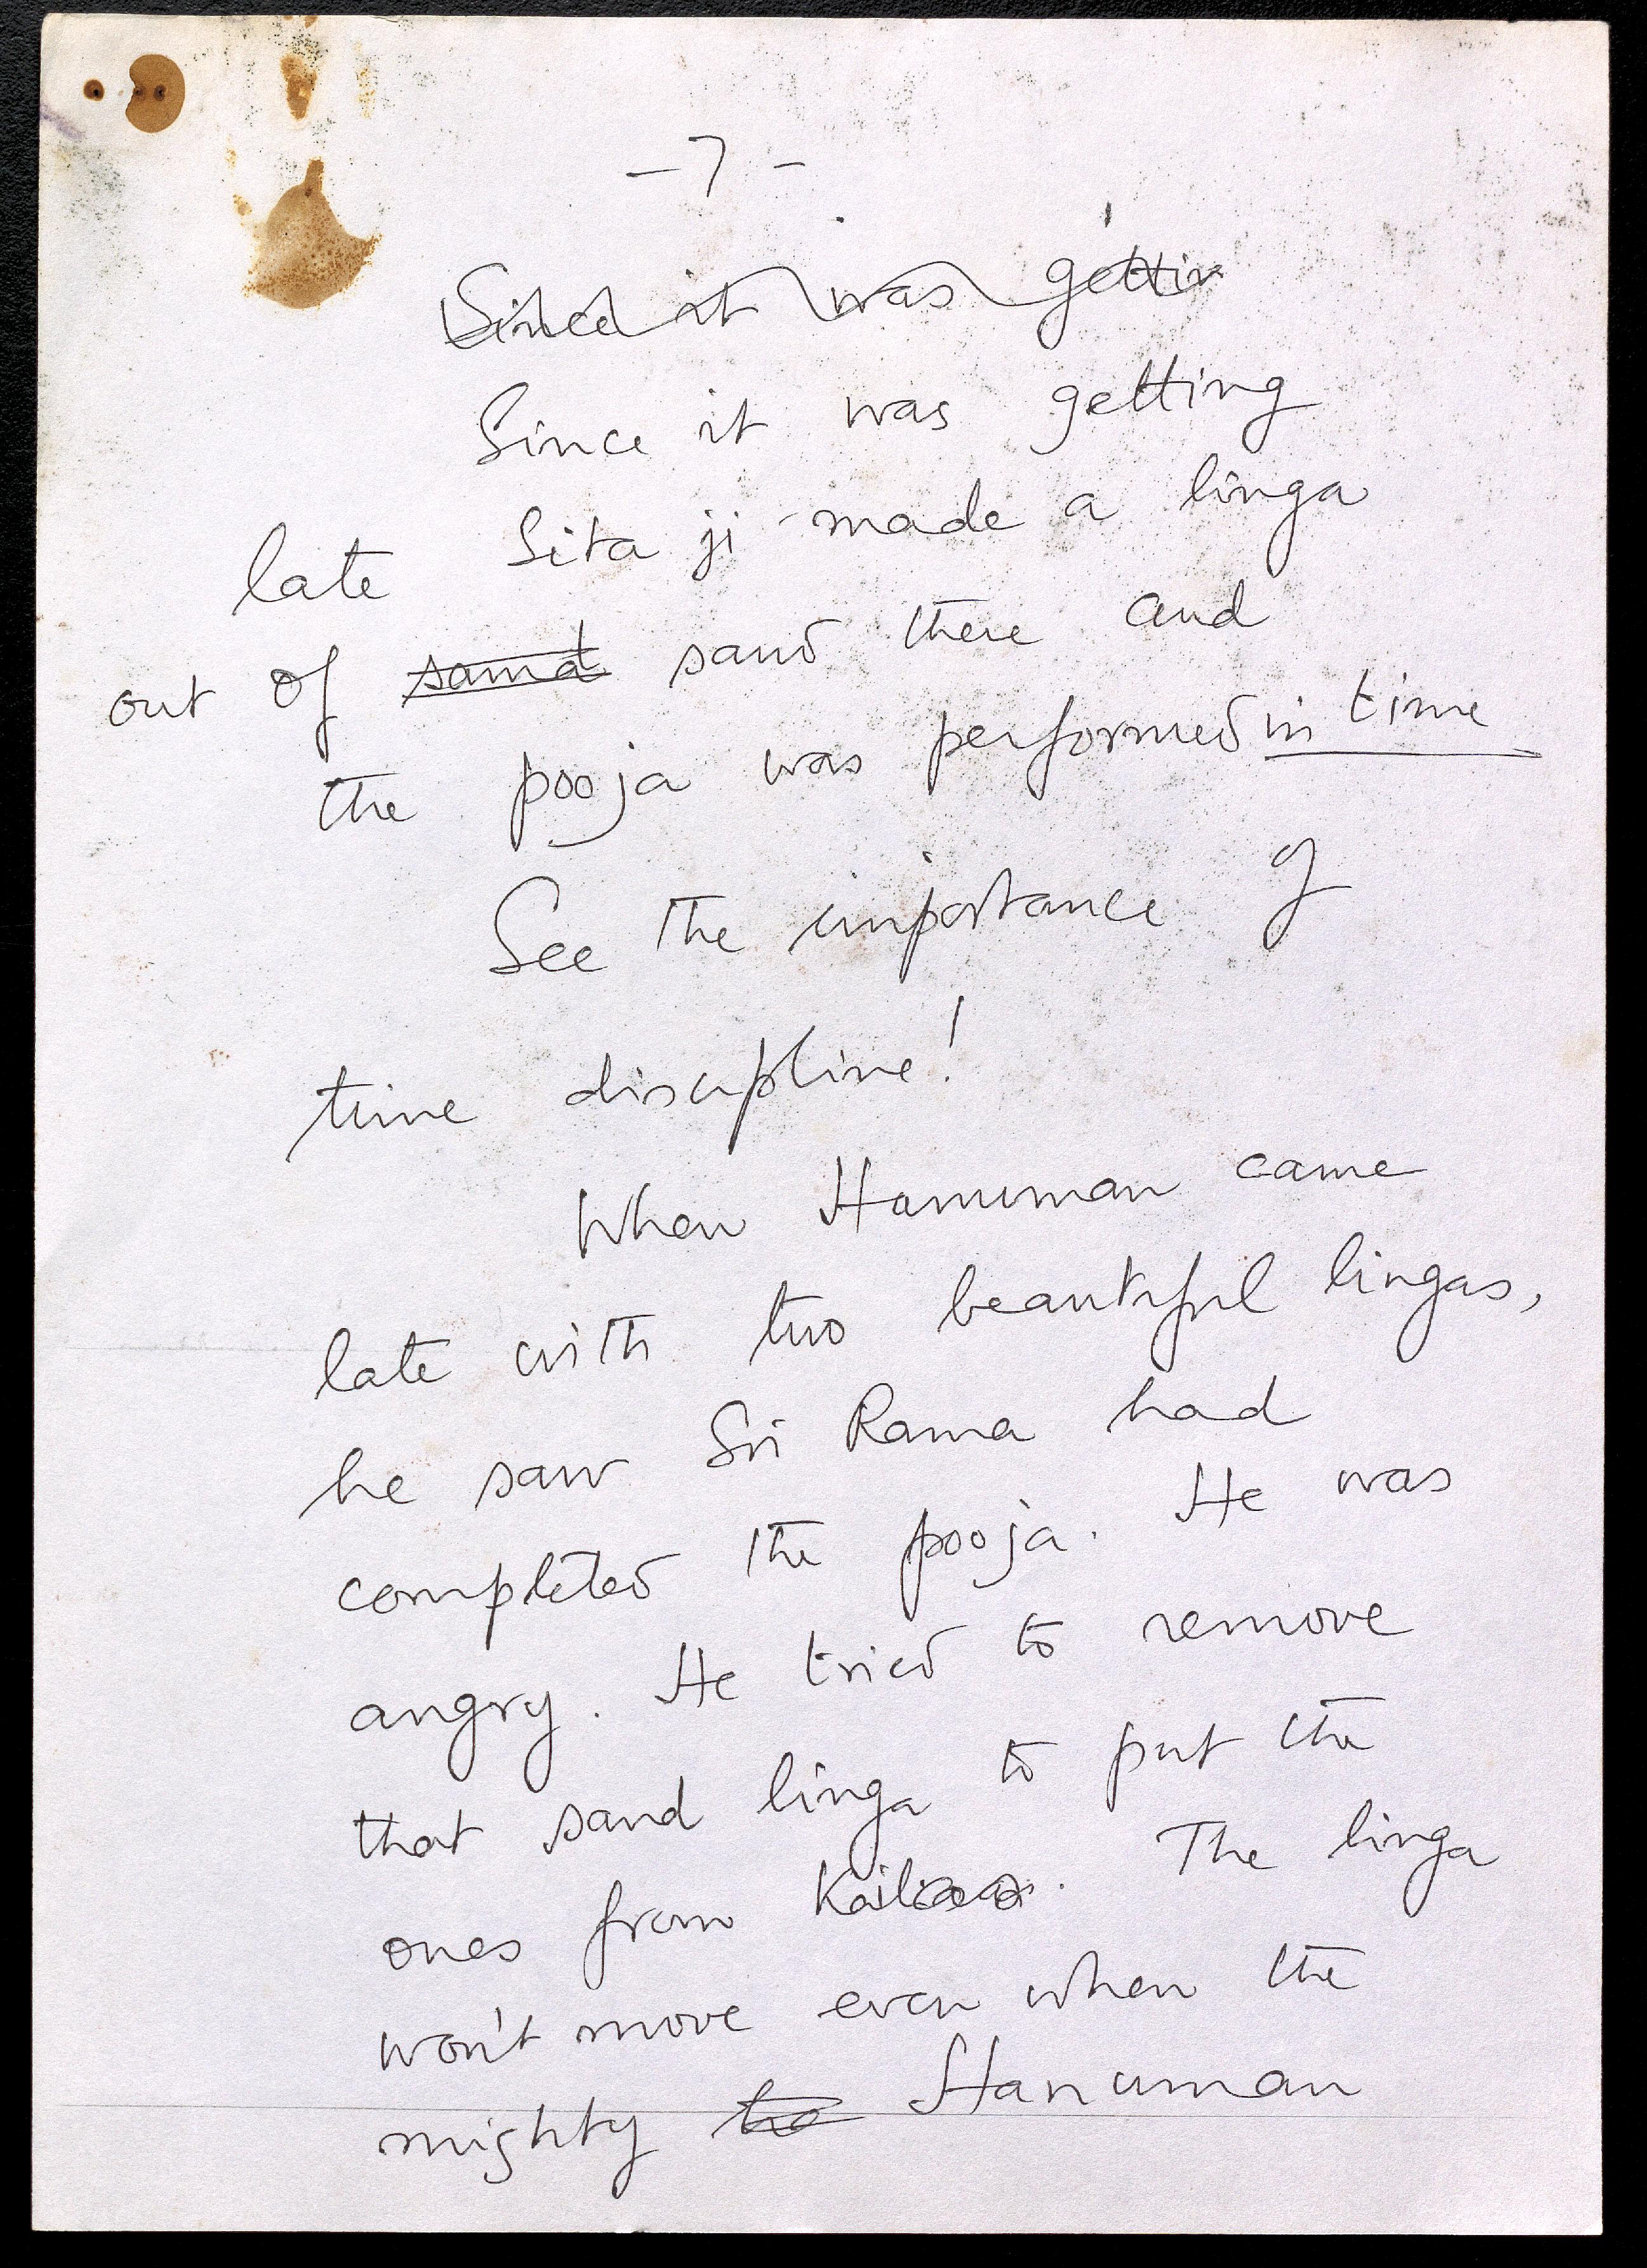 -7-
Since it was gettin
Since it was getting
late Sita ji made a linga
out of samd sand there and
the pooja was performed in time
See the importance of
time discipline!
When Hanuman came
late with two beautiful lingas,
he saw Sri Rama had
completed the pooja. He was
angry. He tried to remove
that sand linga to put the
ones from Kailasa. The linga
won't move even when the
mighty ha Hanuman